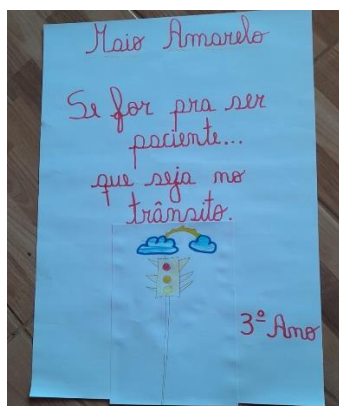 Maio Amarelo
Se for pra ser
paciente...
que seja no
trânsito.
3º Ano